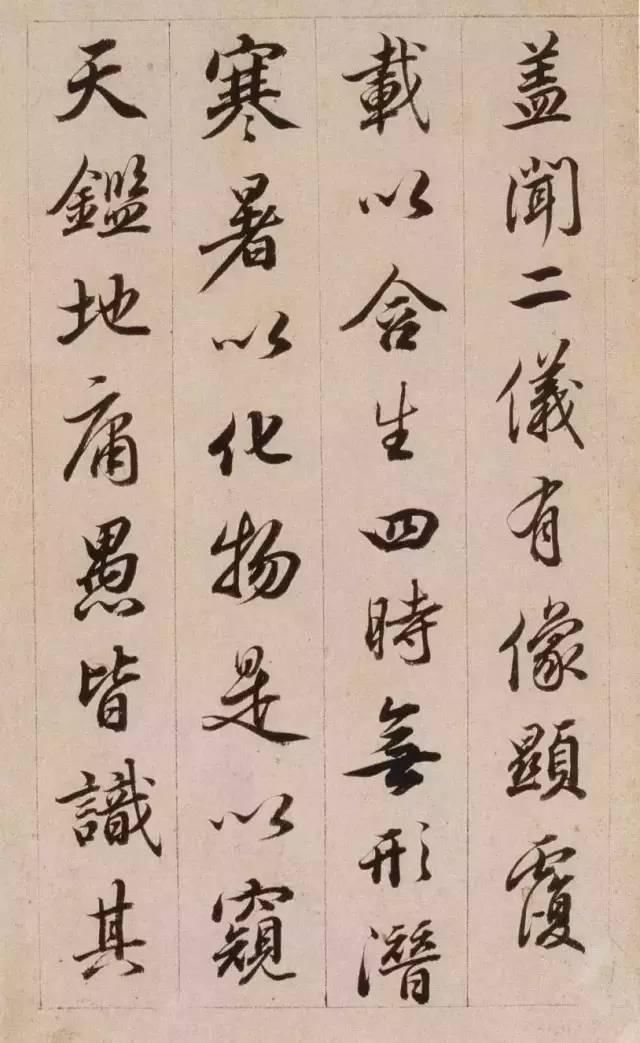 盖聞二儀有像顯覆
載以含生四時無形潛
寒暑以化物是以窺
天鑑地庸愚皆識其